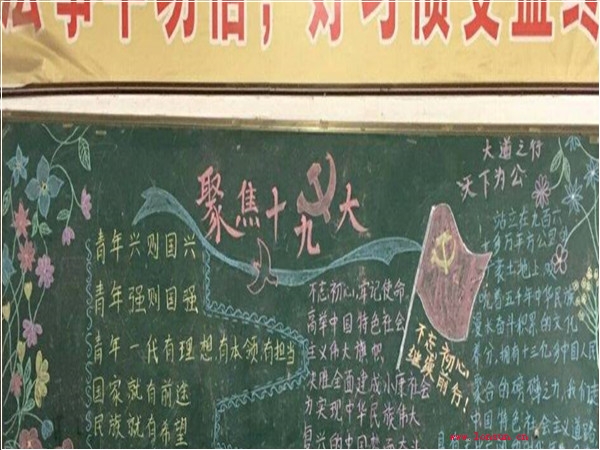 事半功倍，好习惯受益终
聚焦十九大
大道之行
天下为公
青年兴则国兴
青年强则国强
青年一代有理想，有本领，有担当
国家就有前途
民族就有希望
不忘初心，牢记使命，
高举中国特色社会
主义伟大旗帜
决胜全面建成小康社会
为实现中华民族伟大
复兴的中国梦
不忘初心
继续前行！
站立在九百六
十多万平方公里的
土地上
五千年中华民族
积累的文化
养分，拥有十三亿多中国人民
聚合的磅礴之力，我们走
中国特色社会主义道路